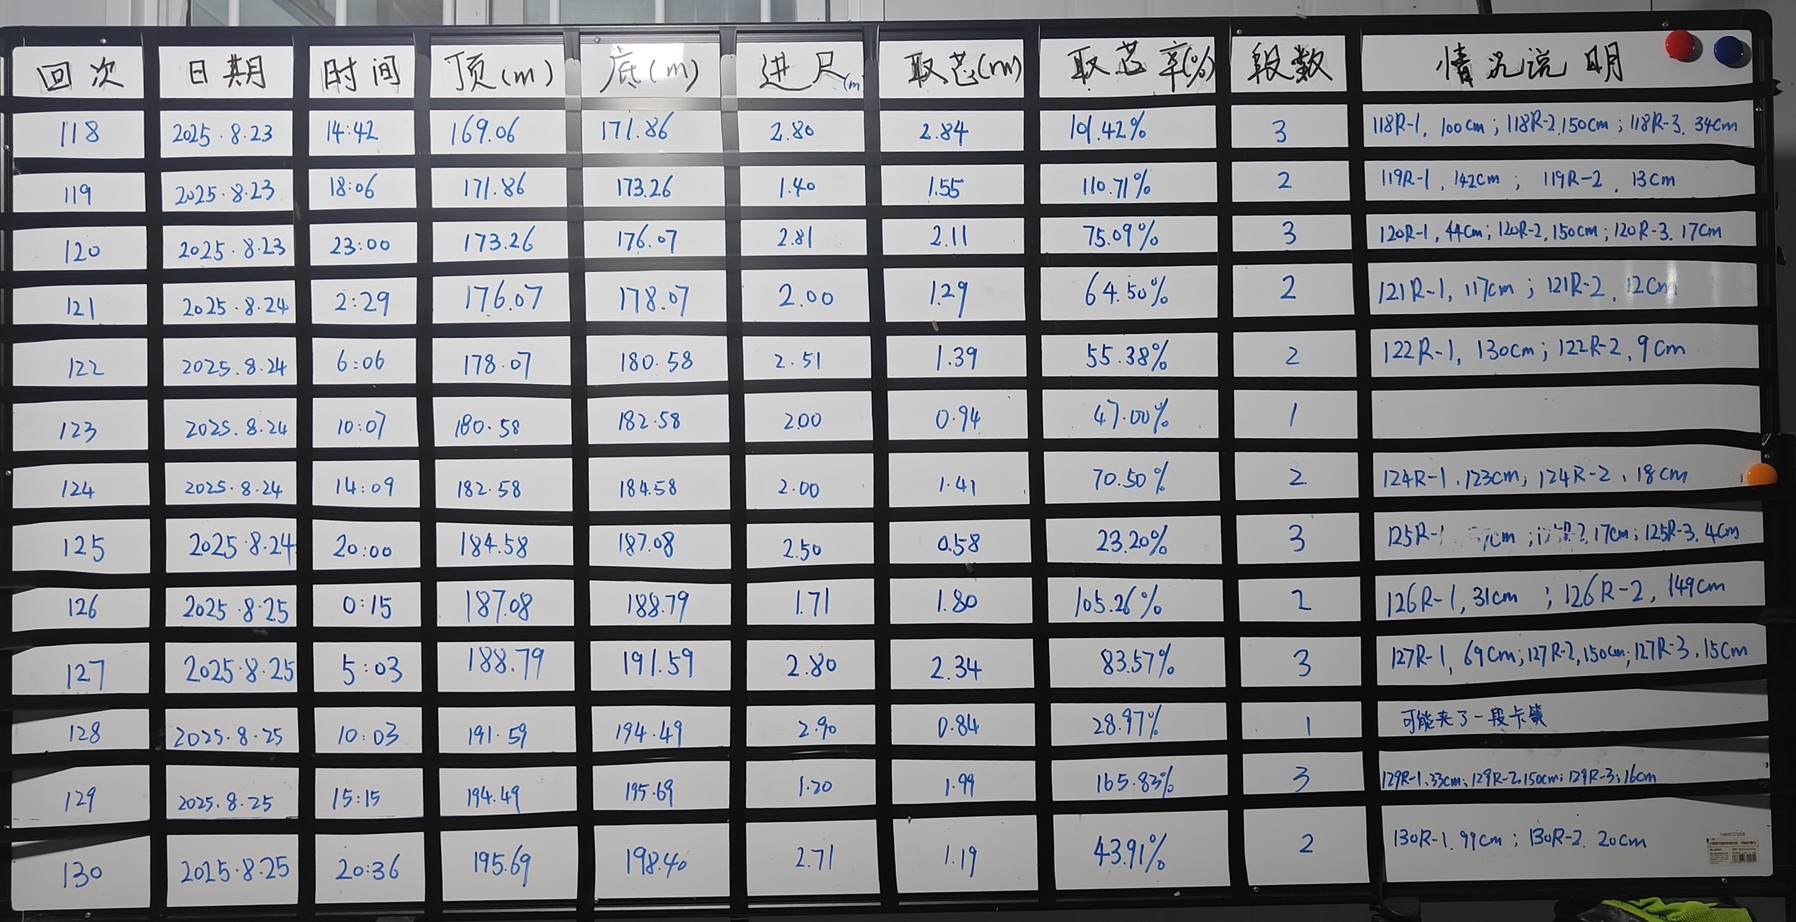 回次 日期 时间 顶(m) 底(m) 进尺(m 取芯(m) 取芯率(%) 段数 情况说明
118 2025.8.23 14:42 169.06 171.86 2.80 2.84 101.42% 3 118R-1, 100cm; 118R-2, 150cm; 118R-3, 34cm
119 2025.8.23 18:06 171.86 173.26 1.40 1.55 110.71% 2 119R-1, 142cm; 119R-2, 13cm
120 2025.8.23 23:00 173.26 176.07 2.81 2.11 75.09% 3 120R-1, 44cm; 120R-2, 150cm; 120R-3, 17cm
121 2025.8.24 2:29 176.07 178.07 2.00 1.29 64.50% 2 121R-1, 117cm; 121R-2, 12cm
122 2025.8.24 6:06 178.07 180.58 2.51 1.39 55.38% 2 122R-1, 130cm; 122R-2, 9cm
123 2025.8.24 10:07 180.58 182.58 200 0.94 47.00% 1
124 2025.8.24 14:09 182.58 184.58 2.00 1.41 70.50% 2 124R-1, 123cm; 124R-2, 18cm
125 2025.8.24 20:00 184.58 187.08 2.50 0.58 23.20% 3 125R- cm; 17cm; 125R-3, 4cm
126 2025.8.25 0:15 187.08 188.79 1.71 1.80 105.26% 2 126R-1, 31cm; 126R-2, 149cm
127 2025.8.25 5:03 188.79 191.59 2.80 2.34 83.57% 3 127R-1, 69cm; 127R-2, 150cm; 127R-3, 15cm
128 2025.8.25 10:03 191.59 194.49 2.90 0.84 28.97% 1 可能夹了一段卡簧
129 2025.8.25 15:15 194.49 195.69 1.20 1.99 165.83% 3 129R-1, 33cm; 129R-2, 150cm; 129R-3; 16cm
130 2025.8.25 20:36 195.69 198.40 2.71 1.19 43.91% 2 130R-1, 99cm; 130R-2, 20cm